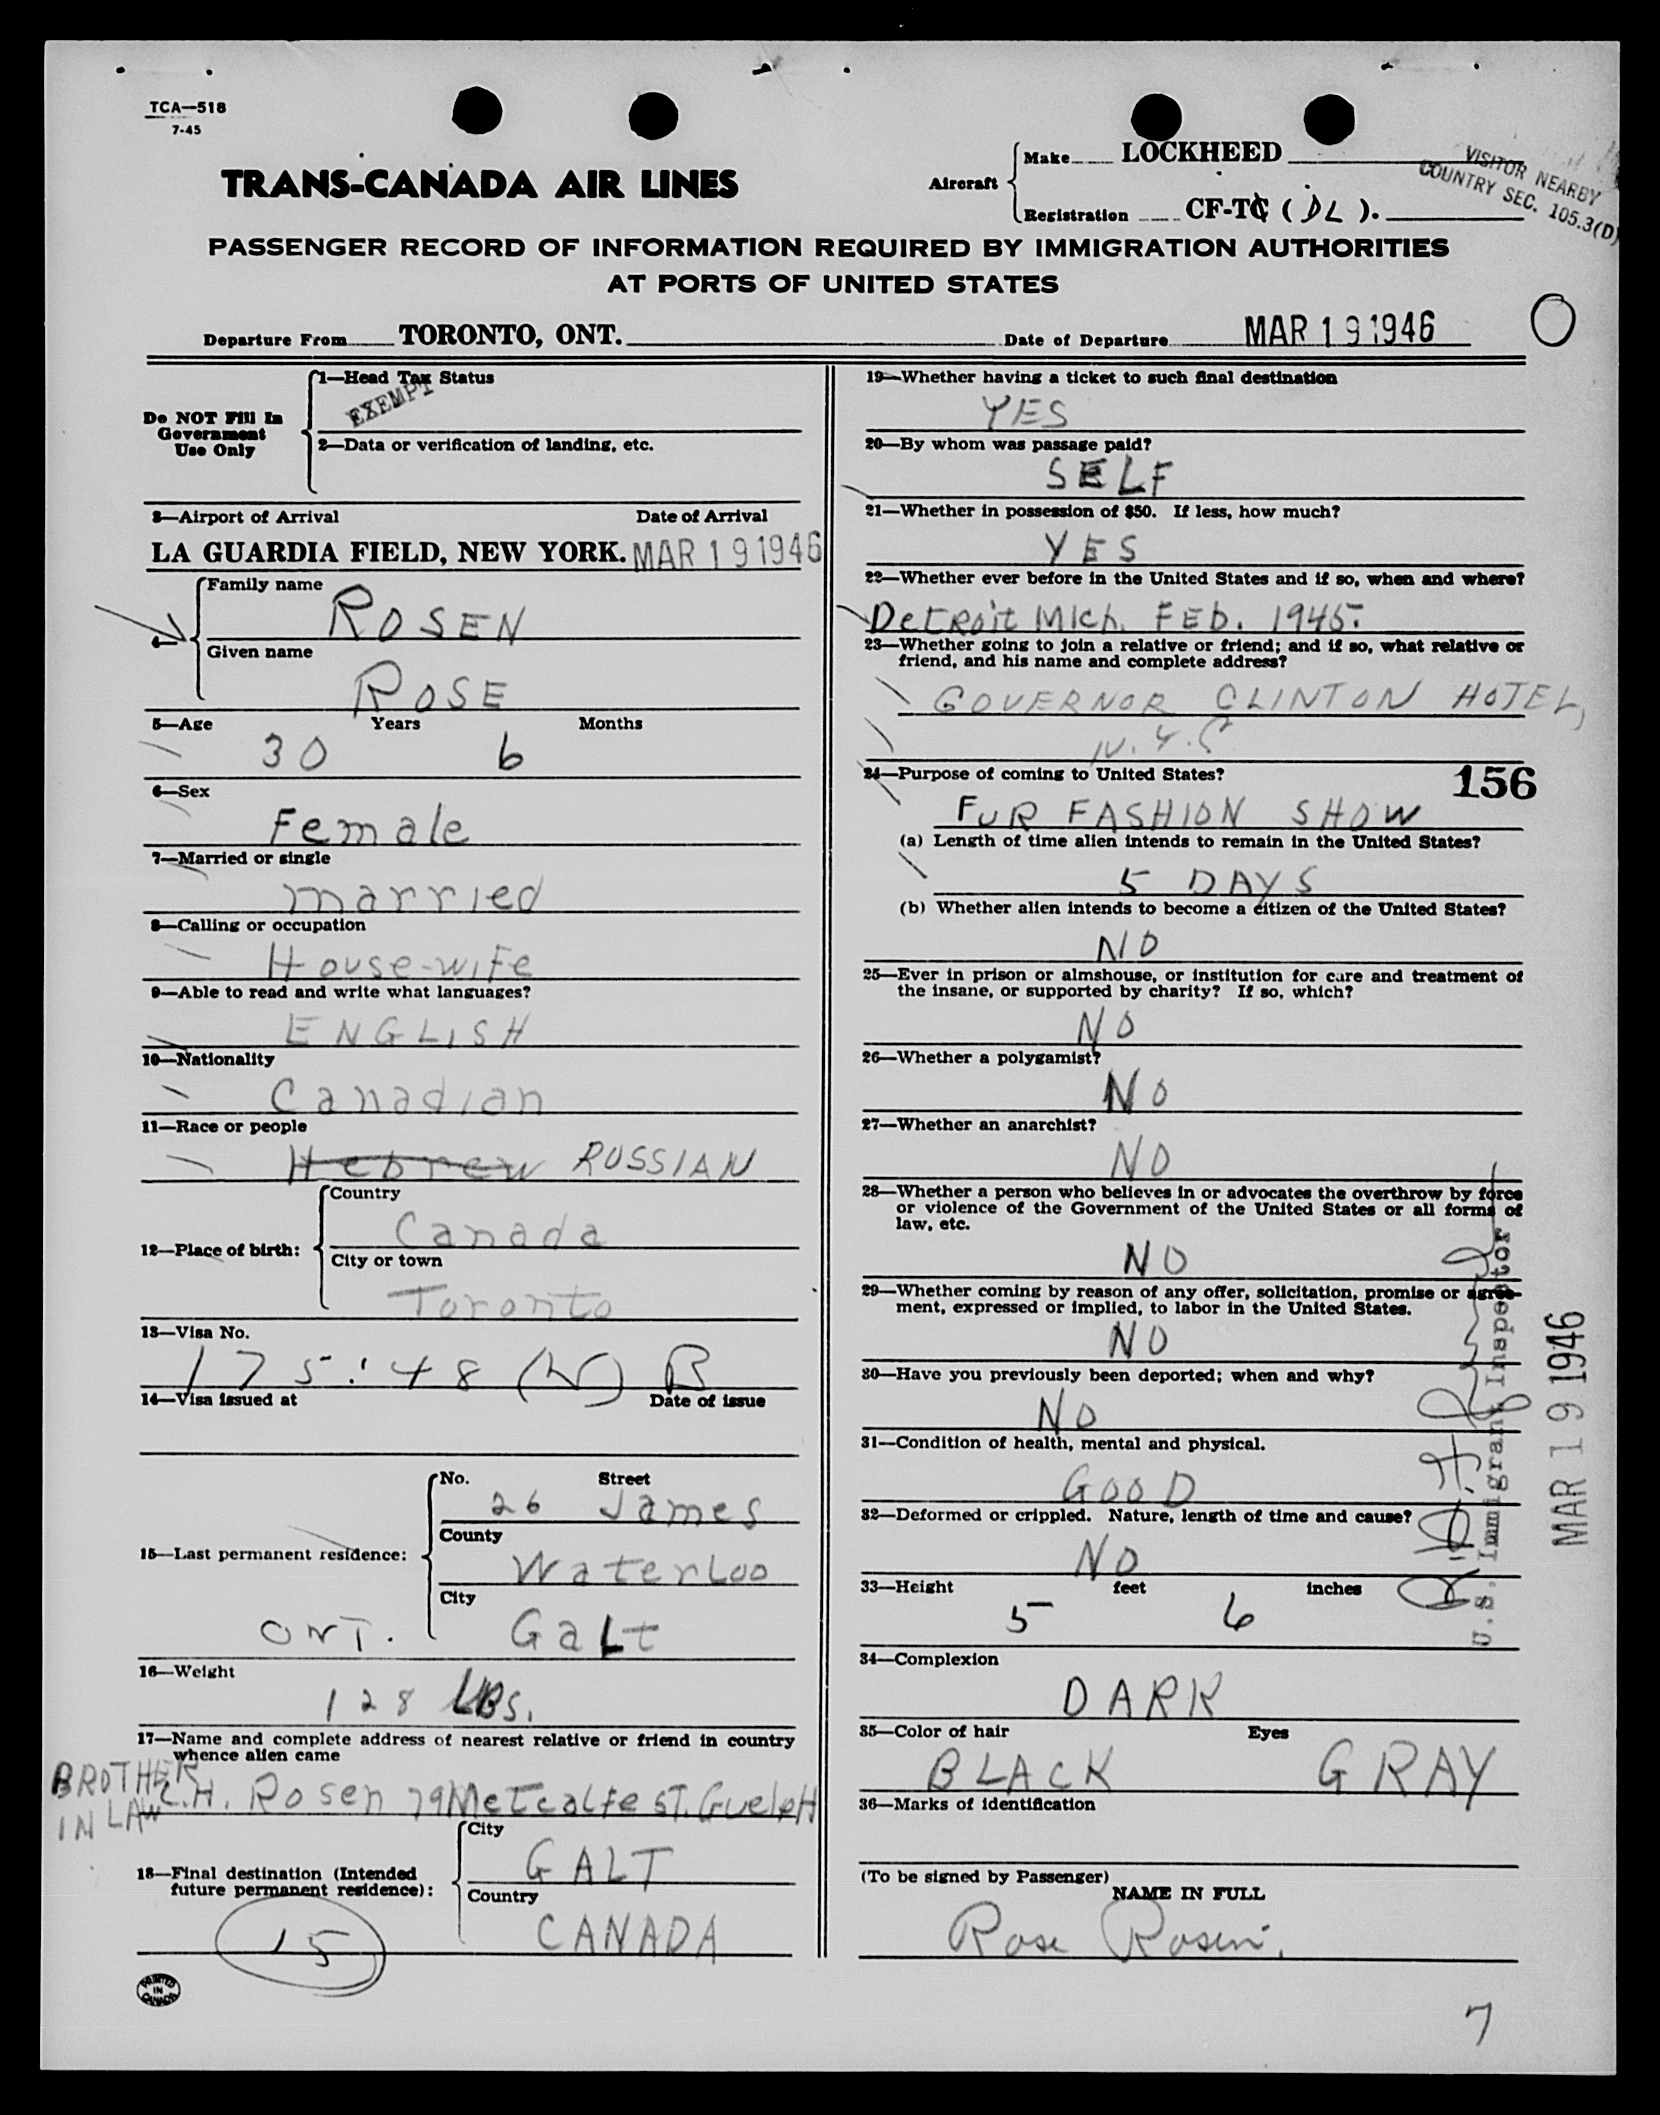 TCA—518
7-45
TRANS-CANADA AIR LINES
Aircraft
Make LOCKHEED
Registration CF-TC ( DL ).
VISITOR NEARBY
COUNTRY SEC. 105.3(D)
PASSENGER RECORD OF INFORMATION REQUIRED BY IMMIGRATION AUTHORITIES
AT PORTS OF UNITED STATES
Departure From TORONTO, ONT. Date of Departure MAR 19 1946
Do NOT Fill In
Government
Use Only
1—Head Tax Status
EXEMPT
2—Data or verification of landing, etc.
3—Airport of Arrival Date of Arrival
LA GUARDIA FIELD, NEW YORK. MAR 19 1946
4—
Family name
ROSEN
Given name
ROSE
5—Age Years Months
30 6
6—Sex
Female
7—Married or single
married
8—Calling or occupation
House-wife
9—Able to read and write what languages?
ENGLISH
10—Nationality
Canadian
11—Race or people
Hebrew RUSSIAN
12—Place of birth:
Country
Canada
City or town
Toronto
13—Visa No.
175:48 (W) B
14—Visa issued at Date of issue
15—Last permanent residence:
No. Street
26 James
County
Waterloo
City
ONT. Galt
16—Weight
128 LBS.
17—Name and complete address of nearest relative or friend in country
whence alien came
BROTHER
IN LAW
C.H. Rosen 79 Metcalfe ST. Guelph
18—Final destination (Intended
future permanent residence):
City
GALT
Country
CANADA
15
PRINTED
IN
CANADA
19—Whether having a ticket to such final destination
YES
20—By whom was passage paid?
SELF
21—Whether in possession of $50. If less, how much?
YES
22—Whether ever before in the United States and if so, when and where?
Detroit Mich. FEb. 1945.
23—Whether going to join a relative or friend; and if so, what relative or
friend, and his name and complete address?
GOVERNOR CLINTON HOTEL,
N.Y.C
24—Purpose of coming to United States?
156
FUR FASHION SHOW
(a) Length of time alien intends to remain in the United States?
5 DAYS
(b) Whether alien intends to become a citizen of the United States?
NO
25—Ever in prison or almshouse, or institution for care and treatment of
the insane, or supported by charity? If so, which?
NO
26—Whether a polygamist?
NO
27—Whether an anarchist?
NO
28—Whether a person who believes in or advocates the overthrow by force
or violence of the Government of the United States or all forms of
law, etc.
NO
29—Whether coming by reason of any offer, solicitation, promise or agree-
ment, expressed or implied, to labor in the United States.
NO
30—Have you previously been deported; when and why?
NO
31—Condition of health, mental and physical.
GOOD
32—Deformed or crippled. Nature, length of time and cause?
NO
33—Height feet inches
5 6
34—Complexion
DARK
35—Color of hair Eyes
BLACK GRAY
36—Marks of identification
(To be signed by Passenger)
NAME IN FULL
Rose Rosen.
U.S. Immigrant Inspector
MAR 19 1946
7